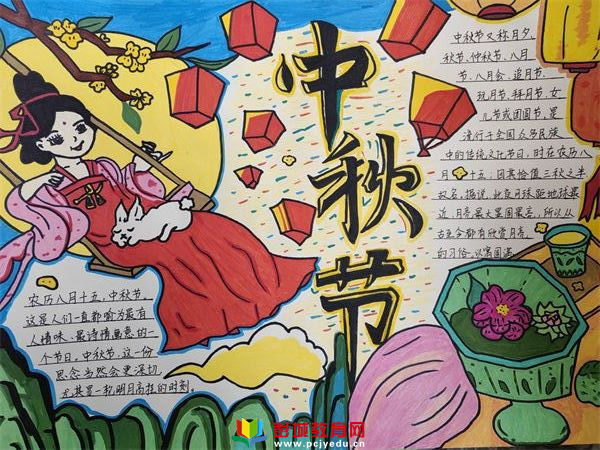 中秋节
中秋节又称月夕,
秋节、仲秋节、八月
节、八月会、追月节、
玩月节、拜月节、女
儿节或团圆节,是
流行于全国众多民族
中的传统文化节日,时在农历八
月十五;因其恰值三秋之半
故名,据说,此夜月球距地球最
近,月亮最大最圆最亮,所以从
古至今都有欣赏月亮
的习俗,以寓团圆
农历八月十五,中秋节。
这是人们一直都喻为最有
人情味、最诗情画意的一
个节日,中秋节,这一份
思念当然会更深切,
尤其是一轮明月高挂的时刻。
教育网
www.pcjyedu.cn